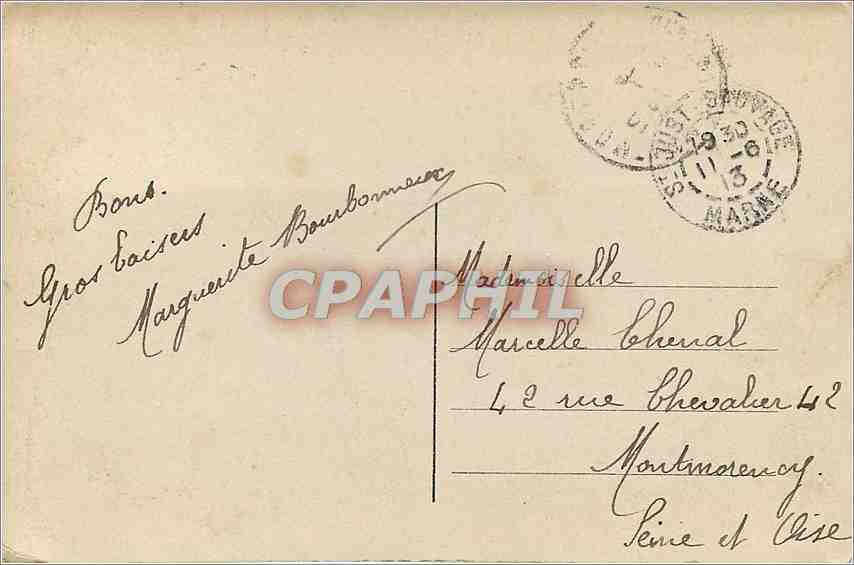 Bons.
Gros baisers
Marguerite Bourbonneux
Mademoiselle
Marcelle Chenal
42 rue Chevalier 42
Montmorency.
Seine et Oise
ST-JUST-SAUVAGE
19 30
11 -6
13
MARNE
CPAPHIL